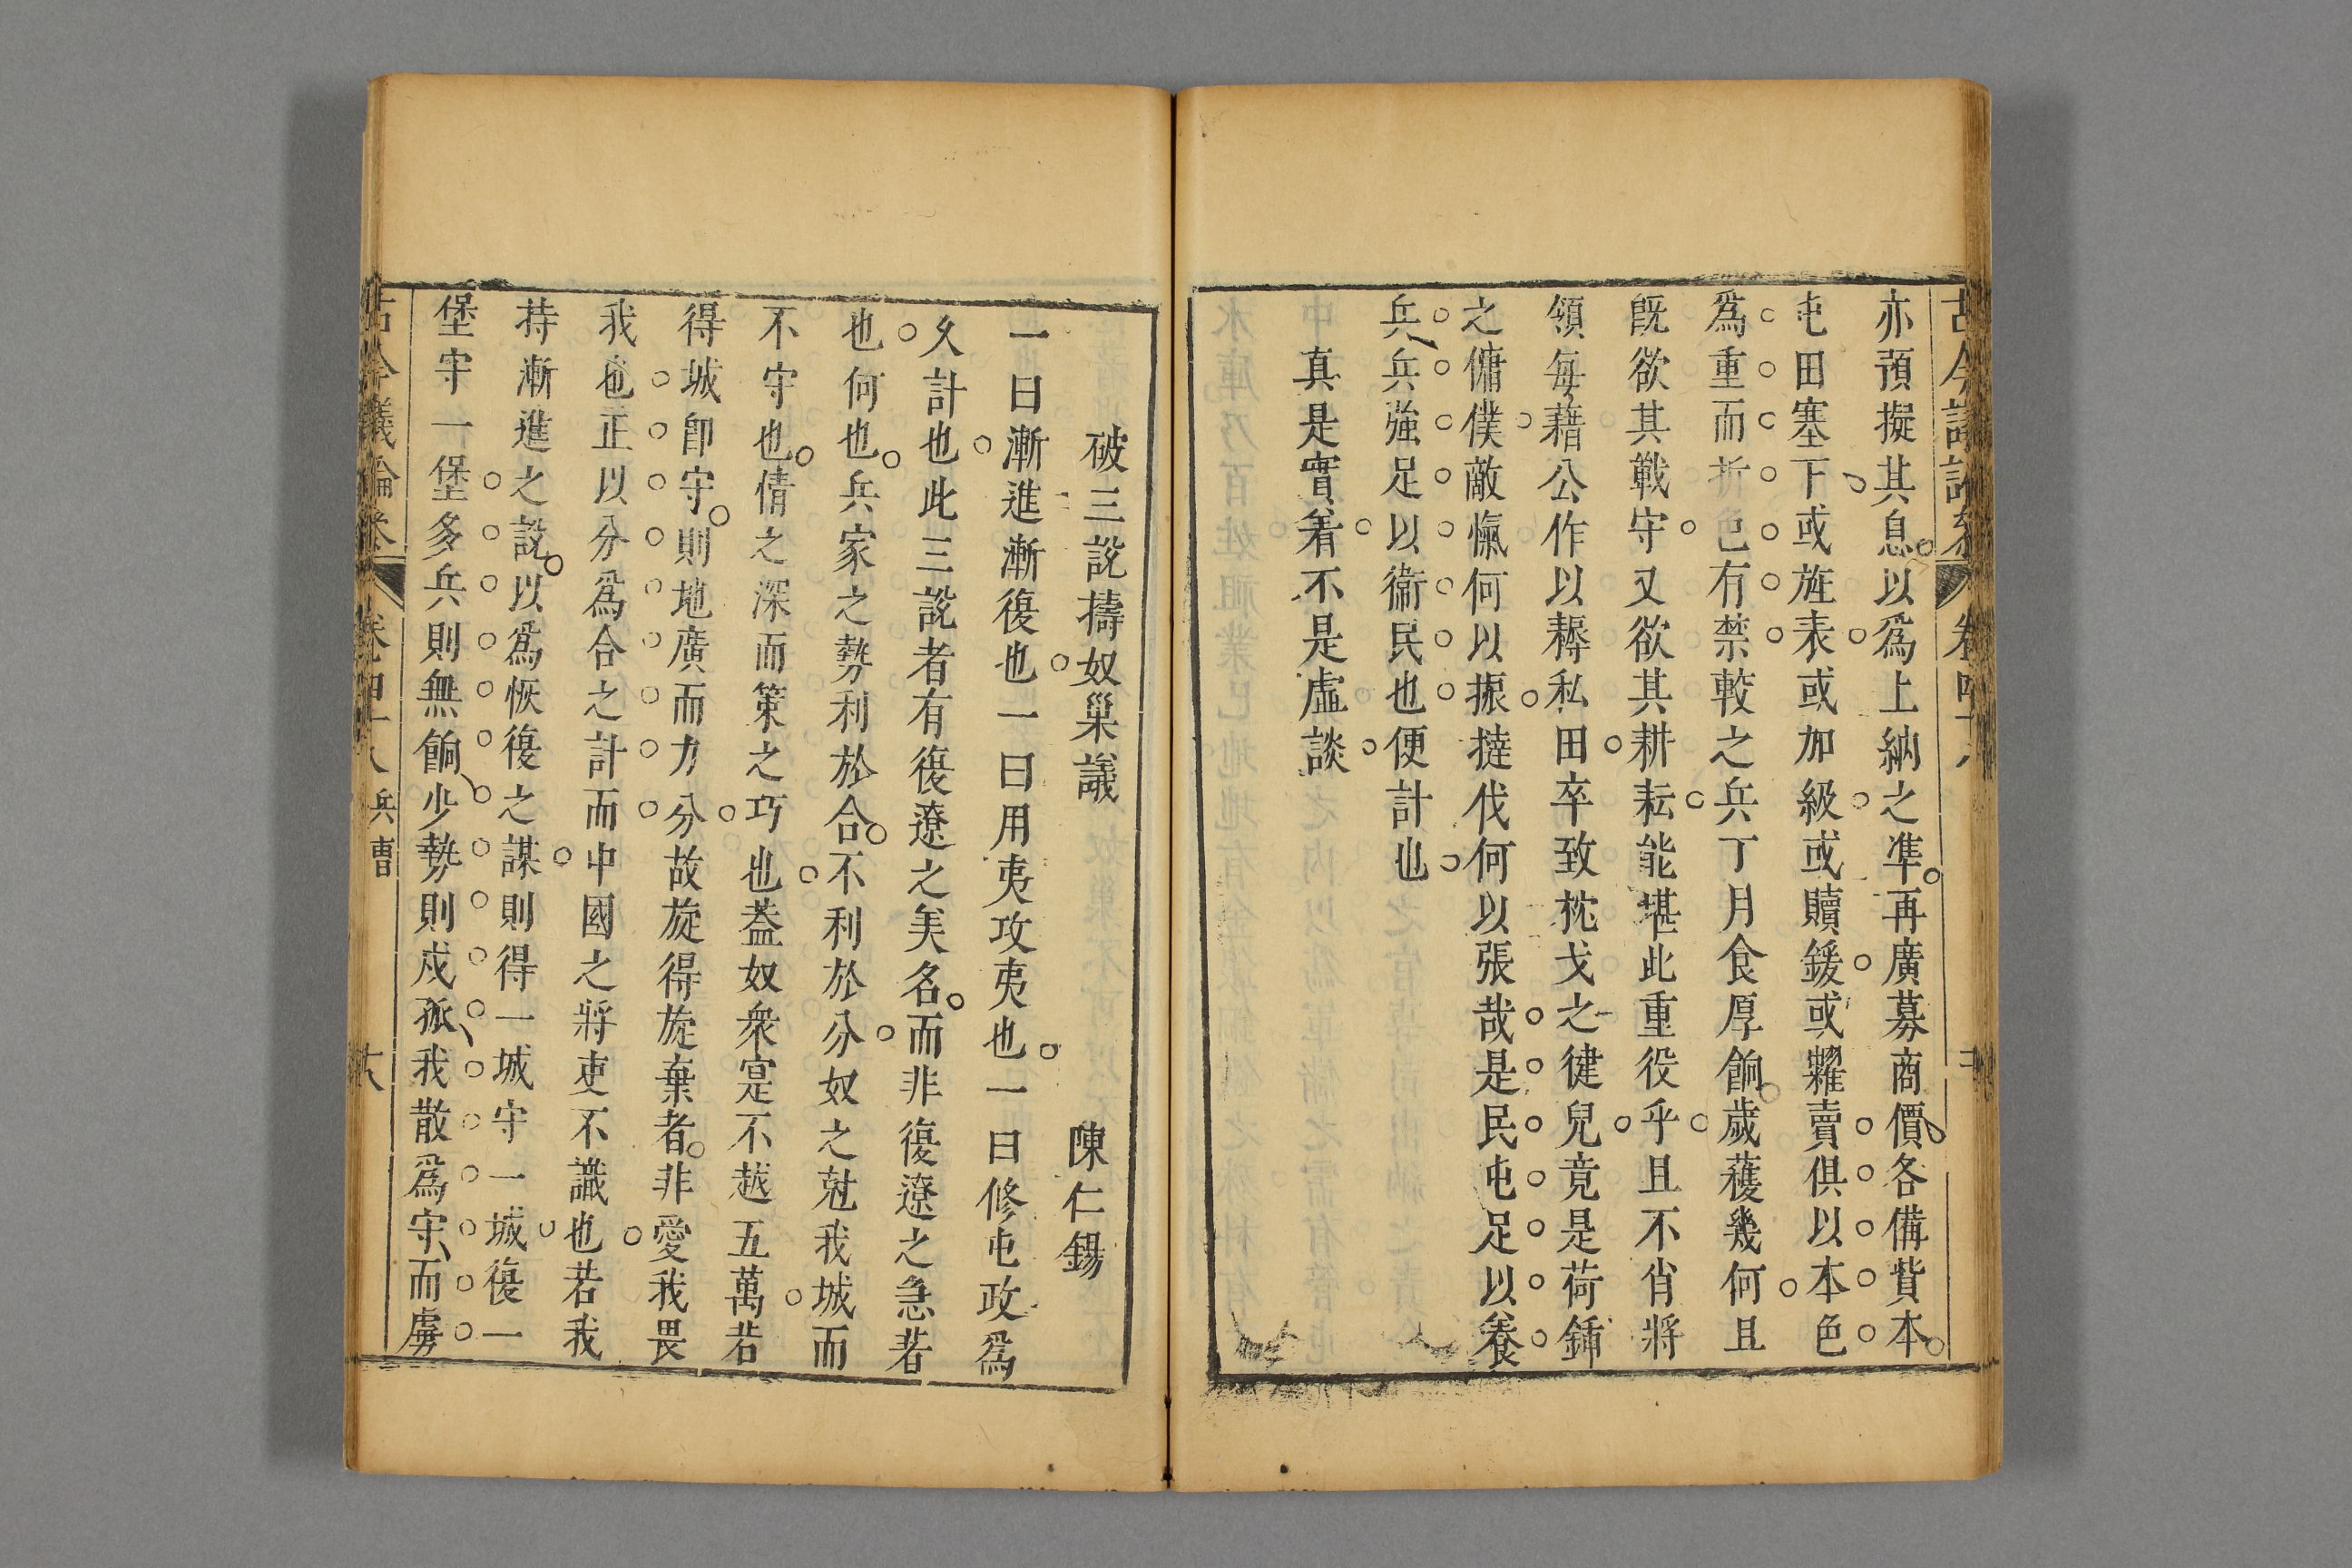 亦預擬其息以爲上納之準再廣募商價各備貲本
屯田塞下或旌表或加級或贖鍰或糶賣俱以本色
爲重而折色有禁較之兵丁月食厚餉歲穫幾何且
旣欲其戰守又欲其耕耘能堪此重役乎且不肖將
領每藉公作以耨私田卒致枕戈之健兒竟是荷鍤
之傭僕敵愾何以振撻伐何以張哉是民屯足以養
兵兵強足以衞民也便計也
真是實着不是虛談
破三說擣奴巢議
陳仁錫
一曰漸進漸復也一曰用夷攻夷也一曰修屯政爲
久計也此三說者有復遼之美名而非復遼之急著
也何也兵家之勢利於合不利於分奴之尅我城而
不守也倩之深而策之巧也葢奴衆寔不越五萬若
得城卽守則地廣而力分故旋得旋棄者非愛我畏
我也正以分爲合之計而中國之將吏不識也若我
持漸進之說以爲恢復之謀則得一城守一城復一
堡守一堡多兵則無餉少勢則戍孤我散爲守而虜
古今議論參
卷四十八
兵曹
十八